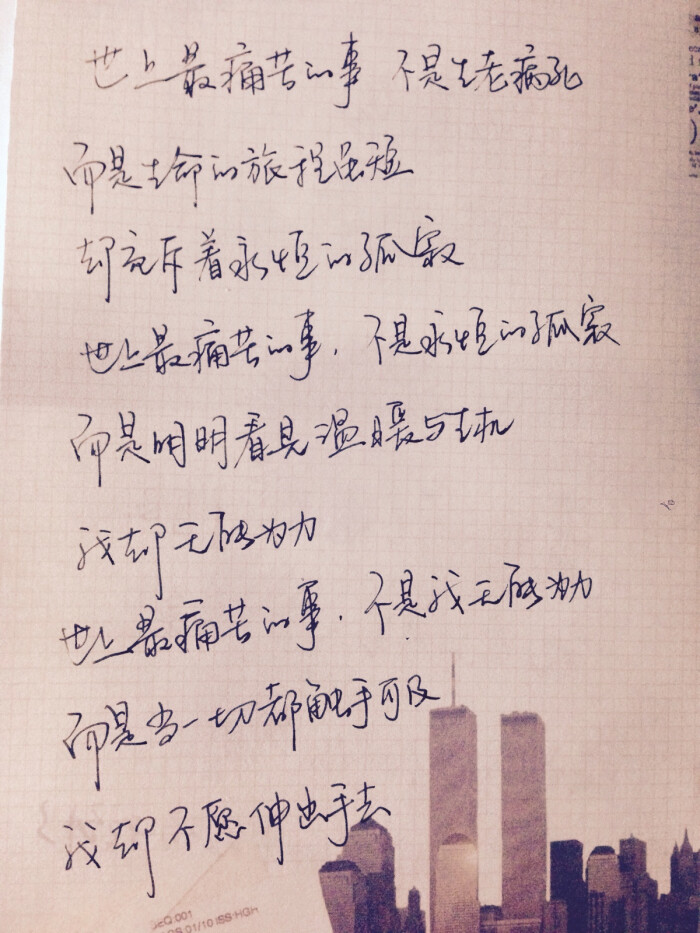 世上最痛苦的事 不是生老病死
而是生命的旅程虽短
却充斥着永恒的孤寂
世上最痛苦的事,不是永恒的孤寂
而是明明看见温暖与生机
我却无能为力
世上最痛苦的事,不是我无能为力
而是当一切都触手可及
我却不愿伸出手去